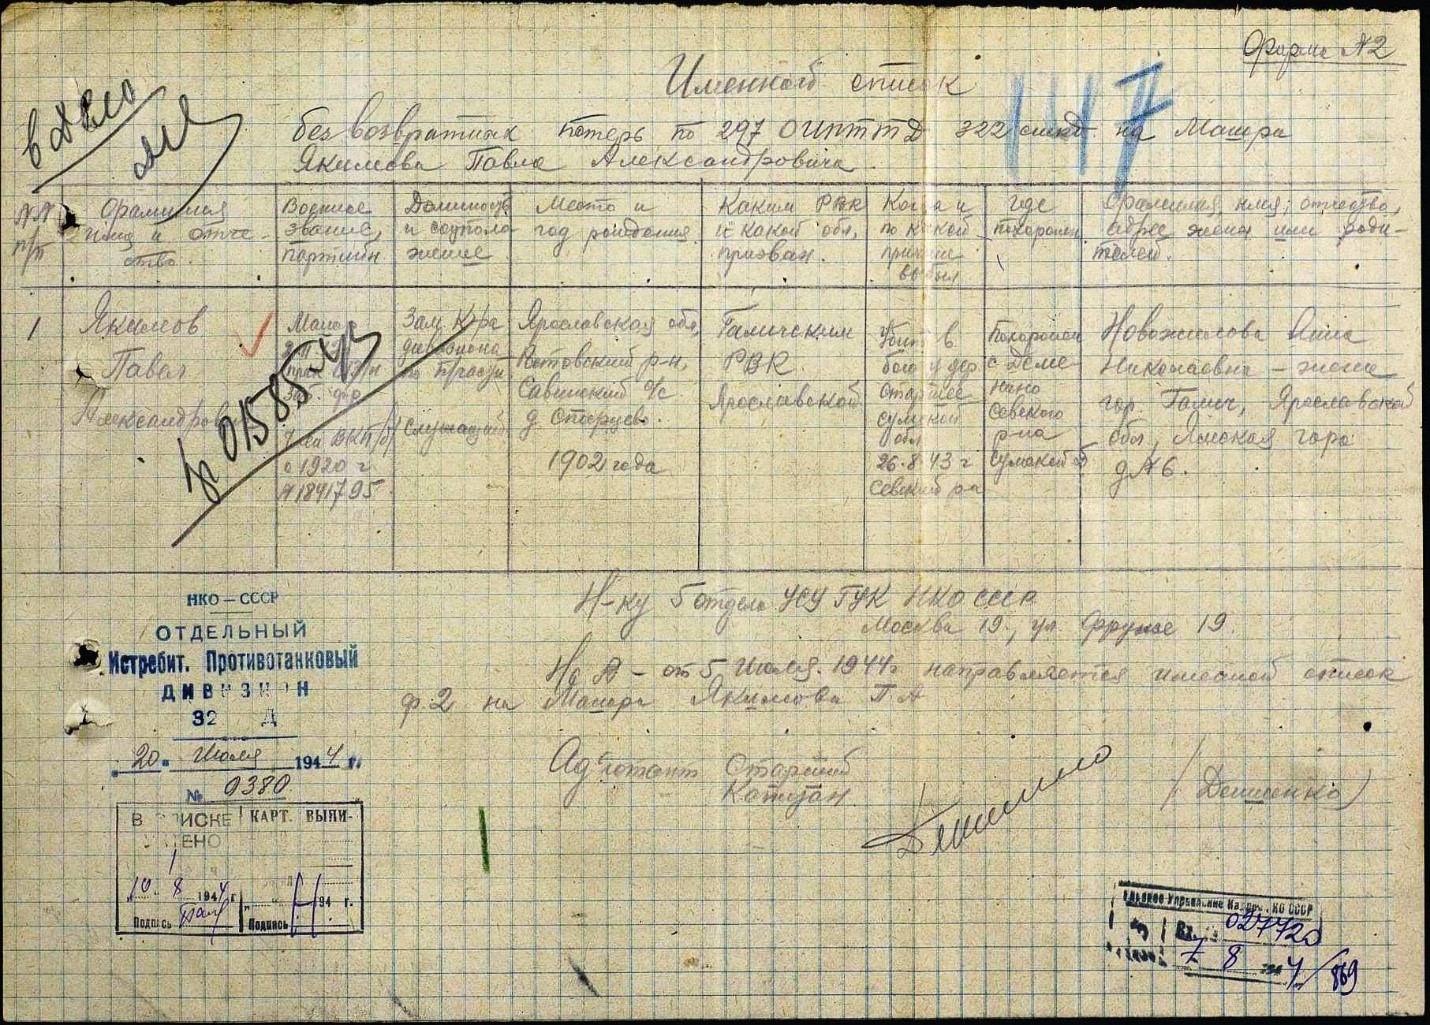 Форма №2
Именной список
147
в дело
безвозвратных потерь по 297 ОИПТД 322 сикд на Майора
Якимова Павла Александровича.
№№ п/п
Фамилия имя и отчество.
Военное звание, партийн
Должность и соуположение
Место и год рождения
Каким РВК и какой обл, призван.
Когда и по какой причине выбыл
где похоронен
Фамилия, имя, отчество, адрес жены или родителей.
1
Якимов
Павел
Александров
Майор
ч-лен ВКП/б/
с 1920 г
№1841795
Зам. К-ра
дивизиона
служащий
Ярославская обл,
р-н,
Савинский с/с
д.
1902 года
Галичским
РВК
Ярославской
Убит в
бою у дер.
Сумской
обл
26.8.43 г
Севский р-н
Похоронен
Севского
р-на
Сумской об
Новожилова Анна
Николаевна – жена
гор. Галич, Ярославской
обл, Ямская гора
д№6.
015885
НКО – СССР
ОТДЕЛЬНЫЙ
Истребит. Противотанковый
ДИВИЗИОН
32 Д
"20" Июля 1944 г.
№ 0380
Н-ку 5 отдела УСУ ГУК НКО СССР
Москва 19, ул Фрунзе 19.
На № – от 5 Июля. 1944г направляется именной список
ф.2 на Майора Якимова П А
Адъютант Старший
Капитан
/Дешенко/
В СПИСКЕ УЧТЕНО
1
10. 8 1944 г
Подпись
КАРТ. ВЫПИ-
194 г.
Подпись
Главное Управление Кадров НКО СССР
5
Вх. 027720
7 8 1944
/869